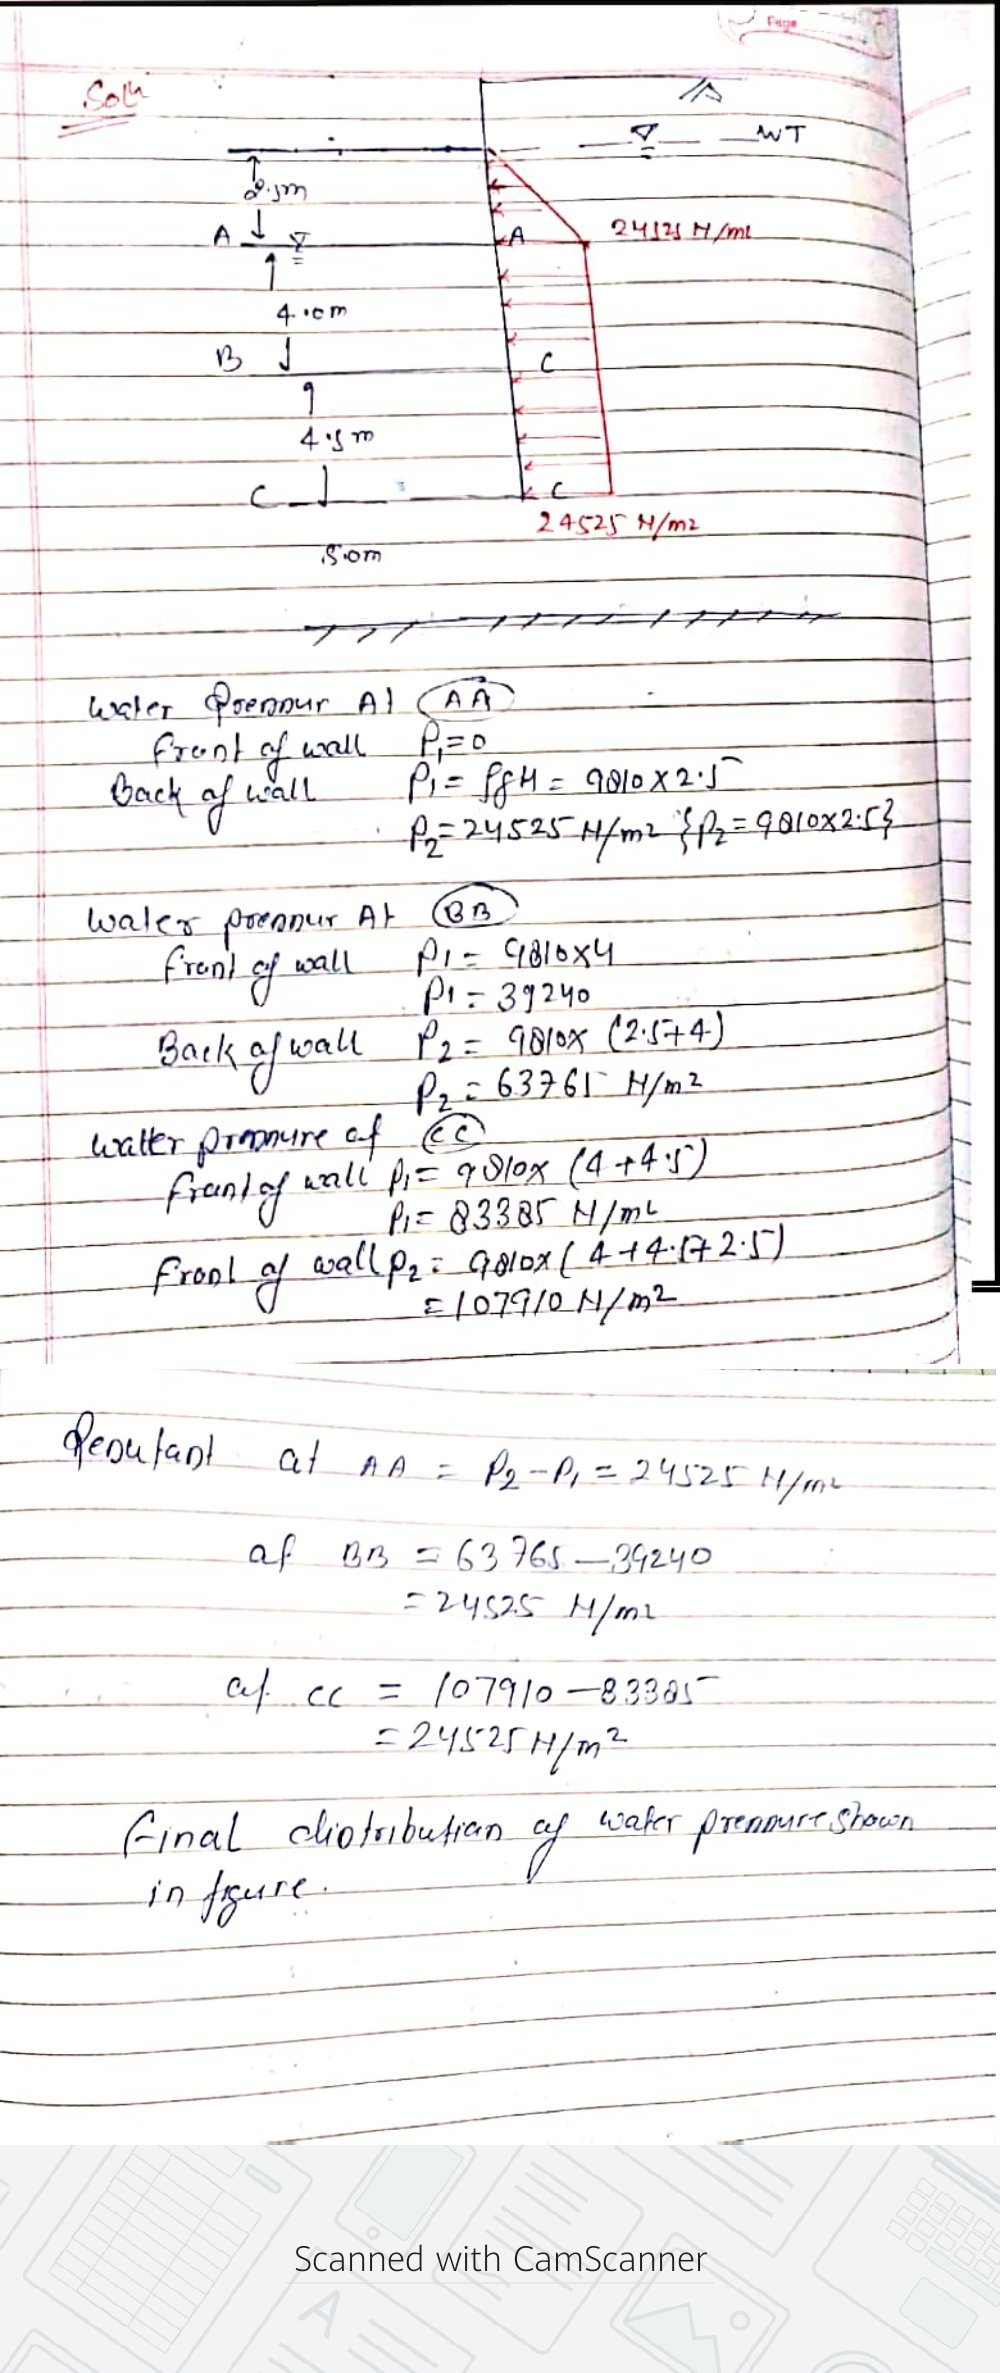 Page
Soln
WT
2.5m
A
A
24525 N/m2
4.0m
B
C
4.5m
C
C
24525 N/m2
5.0m
Water Pressur At AA
front of wall P1=0
Back of wall P1 = ρgH = 9810×2.5
P2=24525 N/m2 {P2=9810×2.5}
Water pressur At BB
front of wall P1 = 9810×4
P1 = 39240
Back of wall P2 = 9810× (2.5+4)
P2 = 63765 N/m2
Watter pressure at CC
front of wall P1 = 9810× (4+4.5)
P1 = 83385 N/m2
Front of wall P2 = 9810×(4+4.5+2.5)
=107910 N/m2
Resutant at AA = P2-P1 = 24525 N/m2
at BB = 63765-39240
=24525 N/m2
at CC = 107910-83385
=24525 N/m2
Final distribution of water pressure shown
in figure.
Scanned with CamScanner